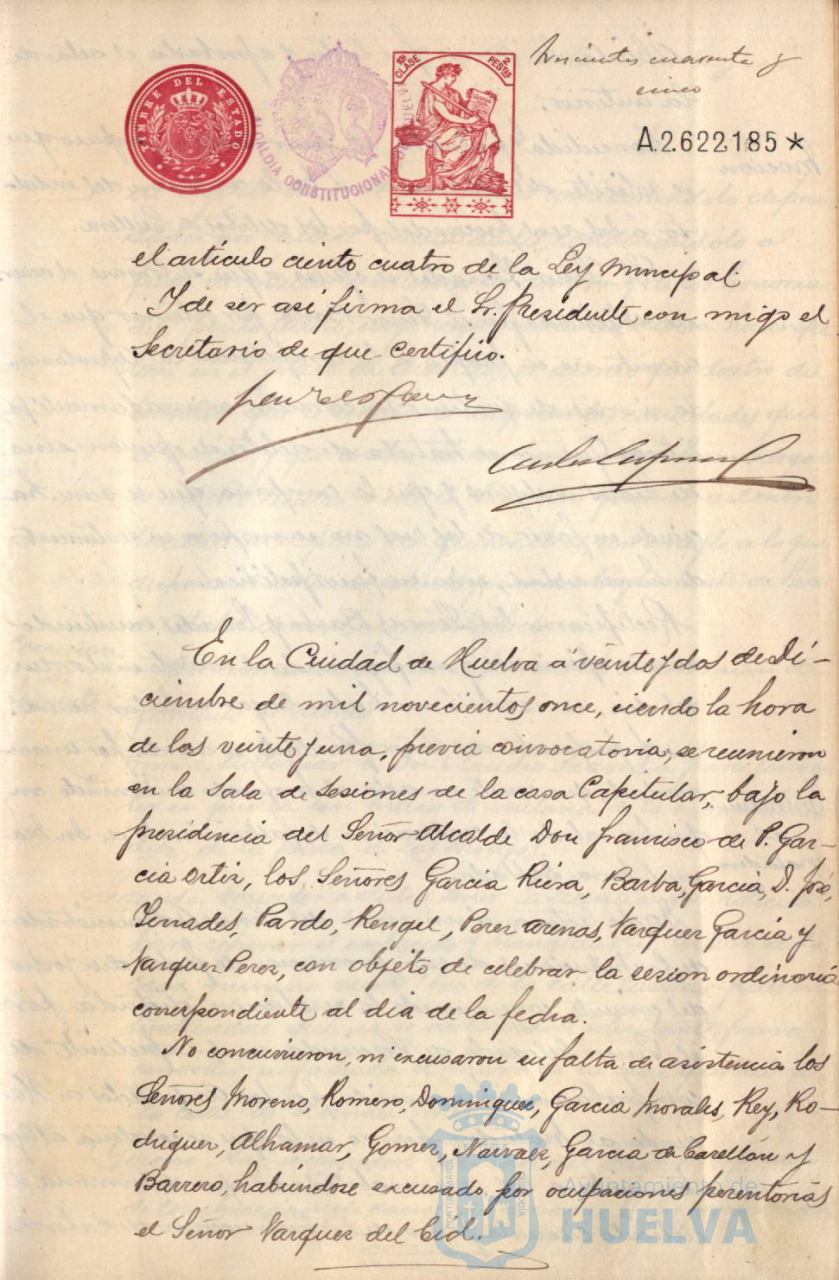 TIMBRE DEL ESTADO
ALCALDIA CONSTITUCIONAL
10ª CLASE
2 PESTAS
Doscientos cuarenta y
cinco
A.2.622.185*
el artículo ciento cuatro de la Ley Municipal.
Y de ser así firma el Sr. Presidente con migo el
Secretario de que certifico.
En la Ciudad de Huelva á veinte y dos de Di-
ciembre de mil novecientos once, siendo la hora
de las veinte y una, prévia convocatoria, se reunieron
en la Sala de Sesiones de la casa Capitular, bajo la
presidencia del Señor Alcalde Don Francisco de P. Gar-
cia Ortiz, los Señores Garcia Riera, Barba, Garcia, D. José,
Terrades, Pardo, Rengel, Perez Arenas, Vazquez Garcia y
Vazquez Perez, con objeto de celebrar la sesion ordinaria
correspondiente al dia de la fecha.
No concurrieron, ni excusaron su falta de asistencia los
Señores Moreno, Romero, Dominguez, Garcia Morales, Rey, Ro-
driguez, Alhamar, Gomez, Narvaez, Garcia de Castellón y
Barrero, habiéndose excusado por ocupaciones perentorias
el Señor Vazquez del Cid.
Ayuntamiento de
HUELVA